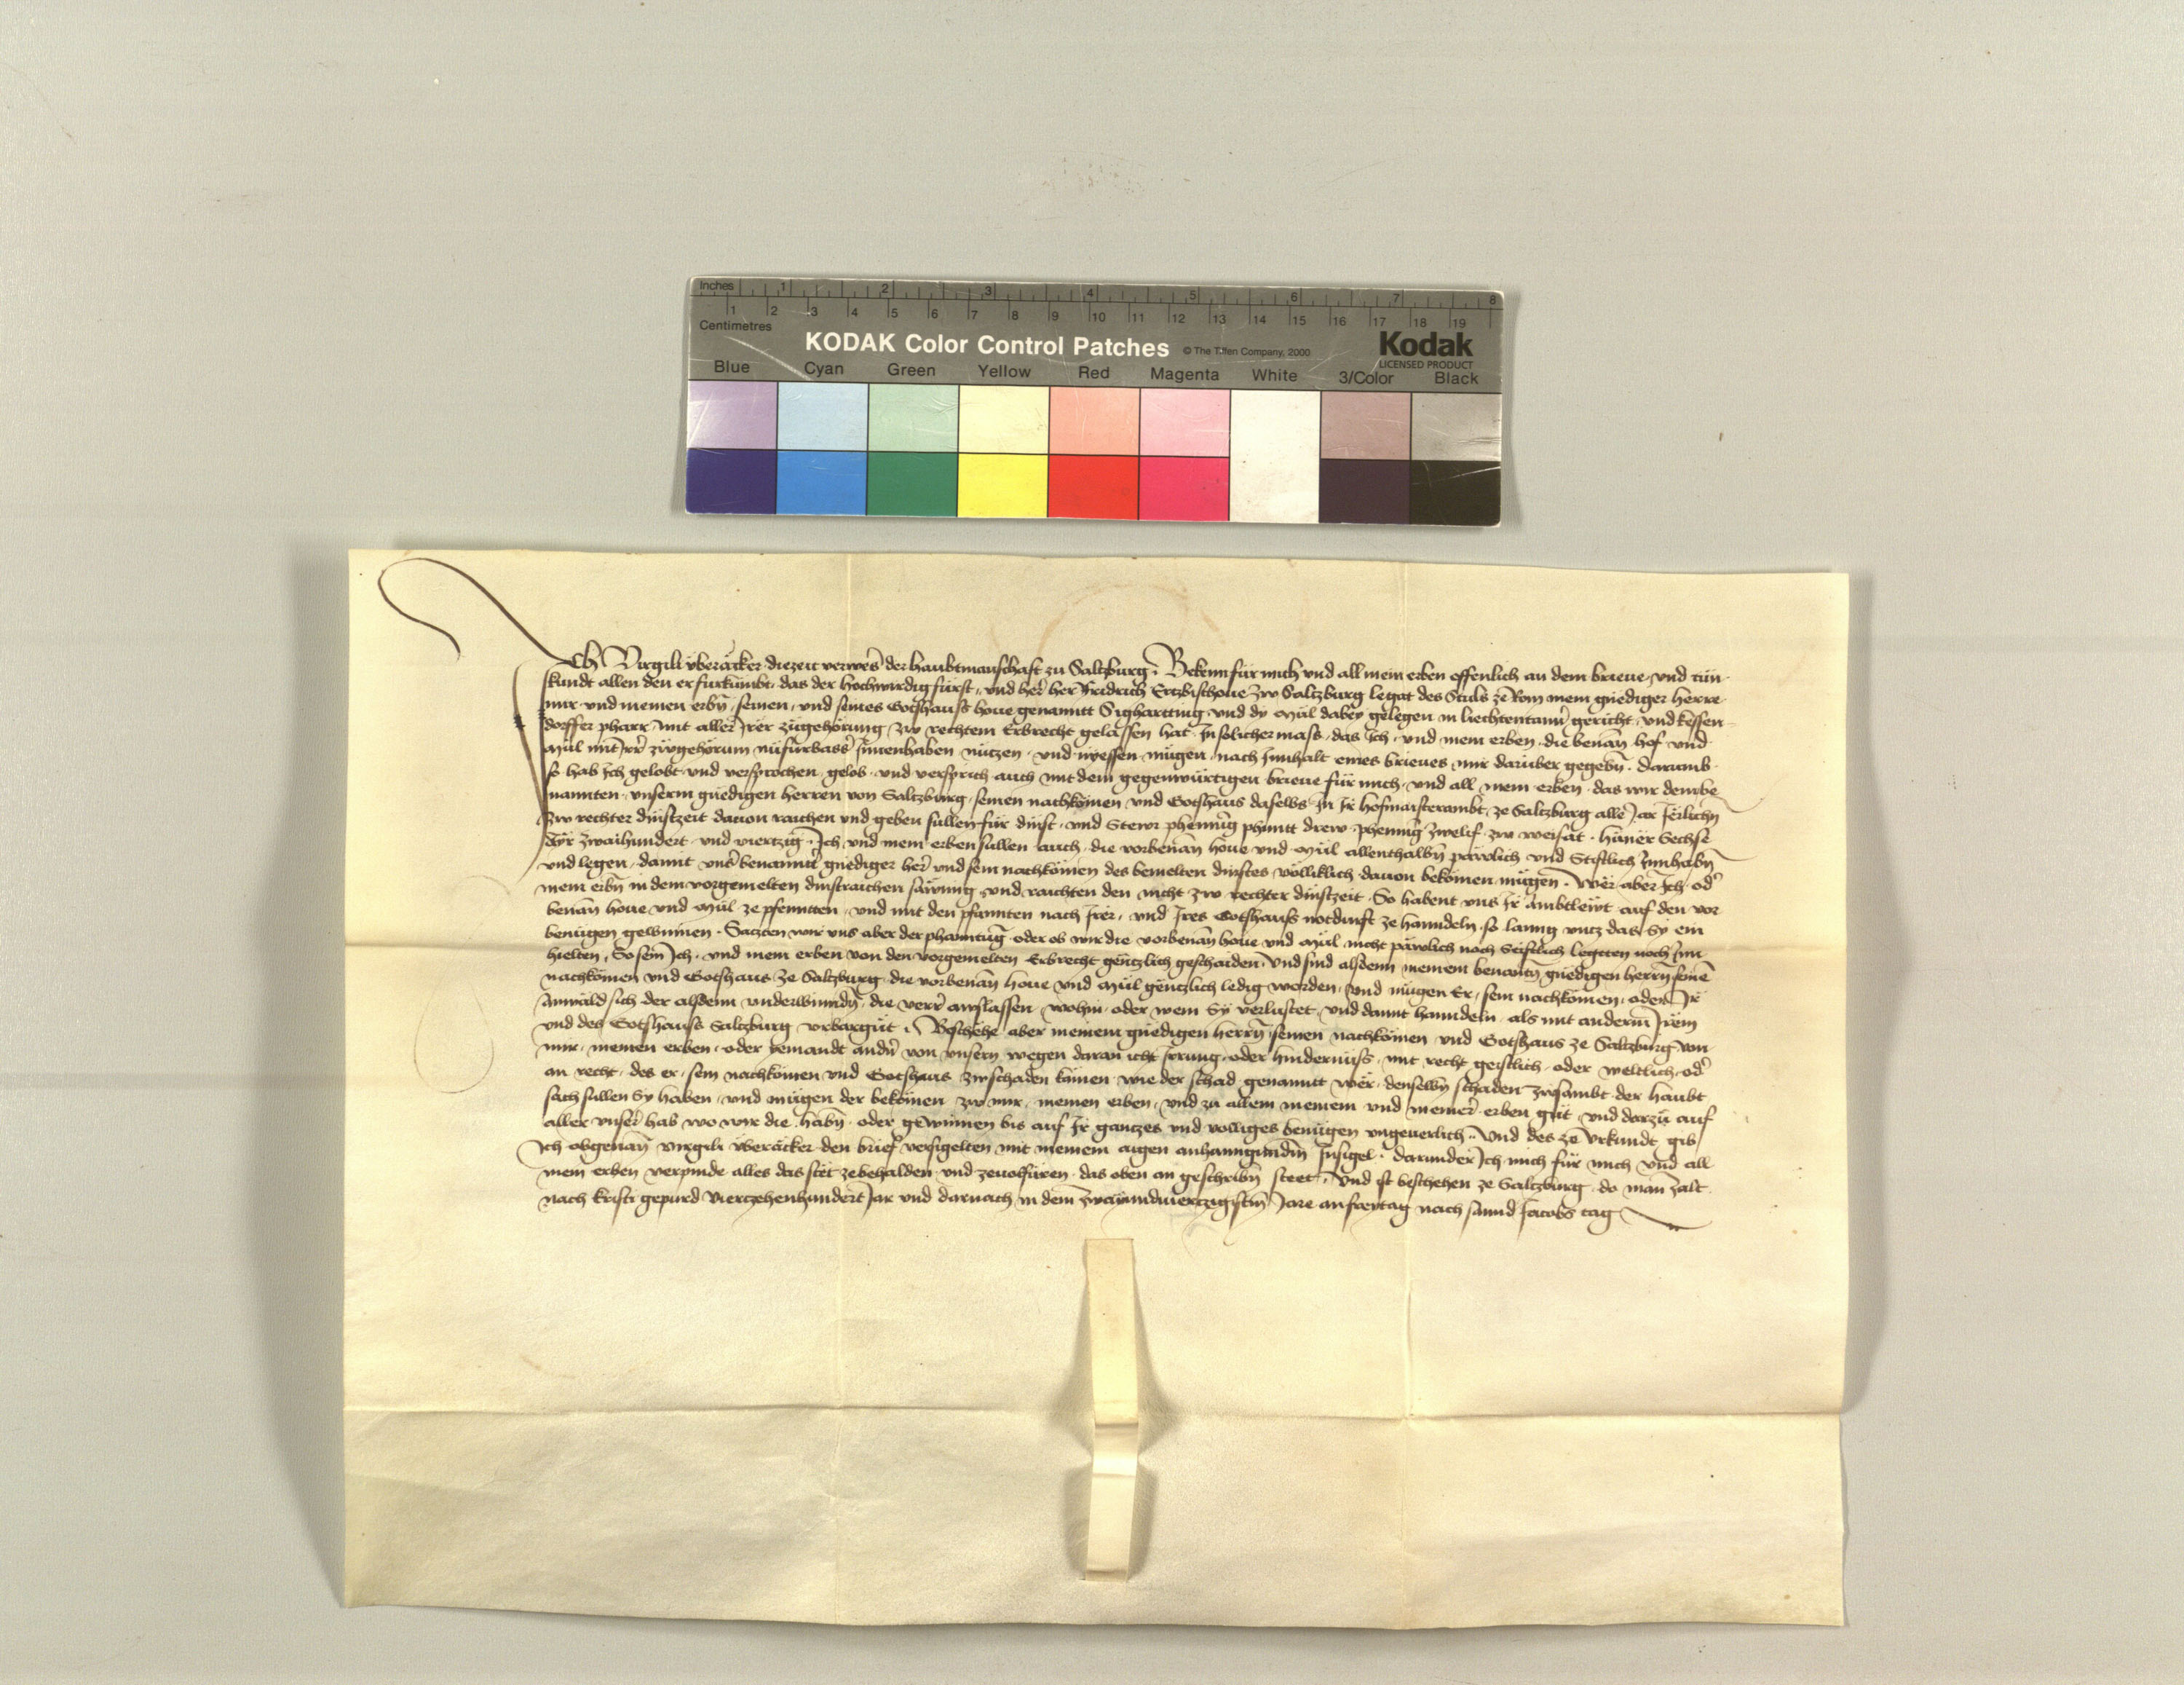 Inches 1 2 3 4 5 6 7 8
1 2 3 4 5 6 7 8 9 10 11 12 13 14 15 16 17 18 19
Centimetres
KODAK Color Control Patches © The Tiffen Company, 2000 Kodak
LICENSED PRODUCT
Blue Cyan Green Yellow Red Magenta White 3/Color Black
Ich Virgili überäcker diezeit verweser der haubtmanschaft zu Saltzburg. Bekenn für mich vnd all mein erben offenlich an dem brieue, vnd tůn
kundt allen den er fürkumbt, das der hochwirdig fürst, vnd her her Fridrich Ertzbischoue zw Saltzburg legat des Stuls ze Rom mein gnediger herre
mir vnd meinen erbn, seinen, vnd seines Gotshauss houe genanntt Sighartting vnd dy Mül dabey gelegen in liechtentanner gericht, vnd kessen
dorffer pharr, mit aller Irer zügehörung, zw rechtem Erbrecht gelassen hat, In solicher mass, das Ich, vnd mein erben, die benan hof vnd
Mül mit Irer zwgehörung nüfürbasser Innenhaben nützen, vnd niessen mügen, nach Innhalt eines brieues mir darüber gegebn. Darumb
so hab Ich gelobt vnd versprochen, gelob, vnd versprich auch mit dem gegenwürtigen brieue für mich, vnd all mein erben, das wir dem be
nannten, vnserm gnedigen herren von Saltzburg, seinen nachkömen vnd Gotshaus daselbs In Ir hofmaisterambt, ze Saltzburg alle Jar Jerlichn
zw rechter dinstzeit dauon raichen vnd geben süllen für dinst, vnd Stewr phenning phuntt drew, phennig zwelif, zw weisat, hüner Sechse
Ayr zwaihundert, vnd viertzig. Ich, vnd mein erben süllen auch, die vorbenan houe vnd Mül allenthalbn päwlich vnd Stiftlich Innhabn
vnd legen, damit vnser benanntter gnediger her vnd sein nachkömen des bemelten dinstes völliklich dauon bekömen mügen. Wer aber Ich, oder
mein erbn in dem vorgemelten dinstraichen säwmig, vnd raichten den nicht zw rechter dinstzeit. So habent vns Ir ambtlewt auf den vor
benan houe vnd Mül ze pfenntten, vnd mit den pfannten nach Irer, vnd Ires Gotshauss notdurft ze hanndeln, so lanng vntz das Sy ein
benügen gewinnen. Satzten wir vns aber der phanntung oder ob wir die vorbenan houe vnd Mül nicht päwlich noch Stiftlich legtten noch Inn
hielten, So sein Ich, vnd mein erben von den vorgemelten Erbrecht gentzlich geschaiden, vnd sind alsdenn meinem benantn gnedigen herrn, seinen
nachkömen vnd Gotshaus ze Saltzburg, die vorbenan houe vnd Mül gentzlich ledig worden, vnd mügen Er, sein nachkömen, oder Ir
Anwäld sich der alsdenn vnderwinndn, die verrer auslassen, wohin, oder wem Sy verlustet, vnd damit hanndeln, als mit anderm Irem
vnd des Gotshauss Saltzburg vrbargüt. Beschehe aber meinem gnedigen herrn, seinen nachkömen vnd Gotshaus ze Saltzburg von
mir, meinen erben, oder yemandt andern von vnsern wegen daran icht Irrung, oder hindernüss, mit recht geistlich, oder weltlich, oder
an recht, des er, sein nachkömen vnd Gotshaus zwschaden kämen, wie der schad genanntt wer, denselbn schaden zwsambt der haubt
sach süllen Sy haben, vnd mügen der bekömen, zw mir, meinen erben, vnd zu allem meinem vnd meiner erben güt, vnd darzü auf
aller vnser hab wo wir die habn, oder gewinnen bis auf Ir ganntzes vnd volliges benügen vngeuerlich. Vnd des ze Vrkundt, gib
Ich obgenan Virgili überäcker den brief versigelten mit meinem aigen anhanngunden Insigel. Darunder Ich mich für mich vnd all
mein erben verpinde alles das stet zebehalden vnd zeuolfüren, das oben an geschribn steet. Vnd ist beschehen ze Saltzburg, do man zalt
nach kristi gepurd Viertzehenhundert Jar vnd darnach in dem zwayundviertzigistn Jare an freytag nach sannd Jacobs tag